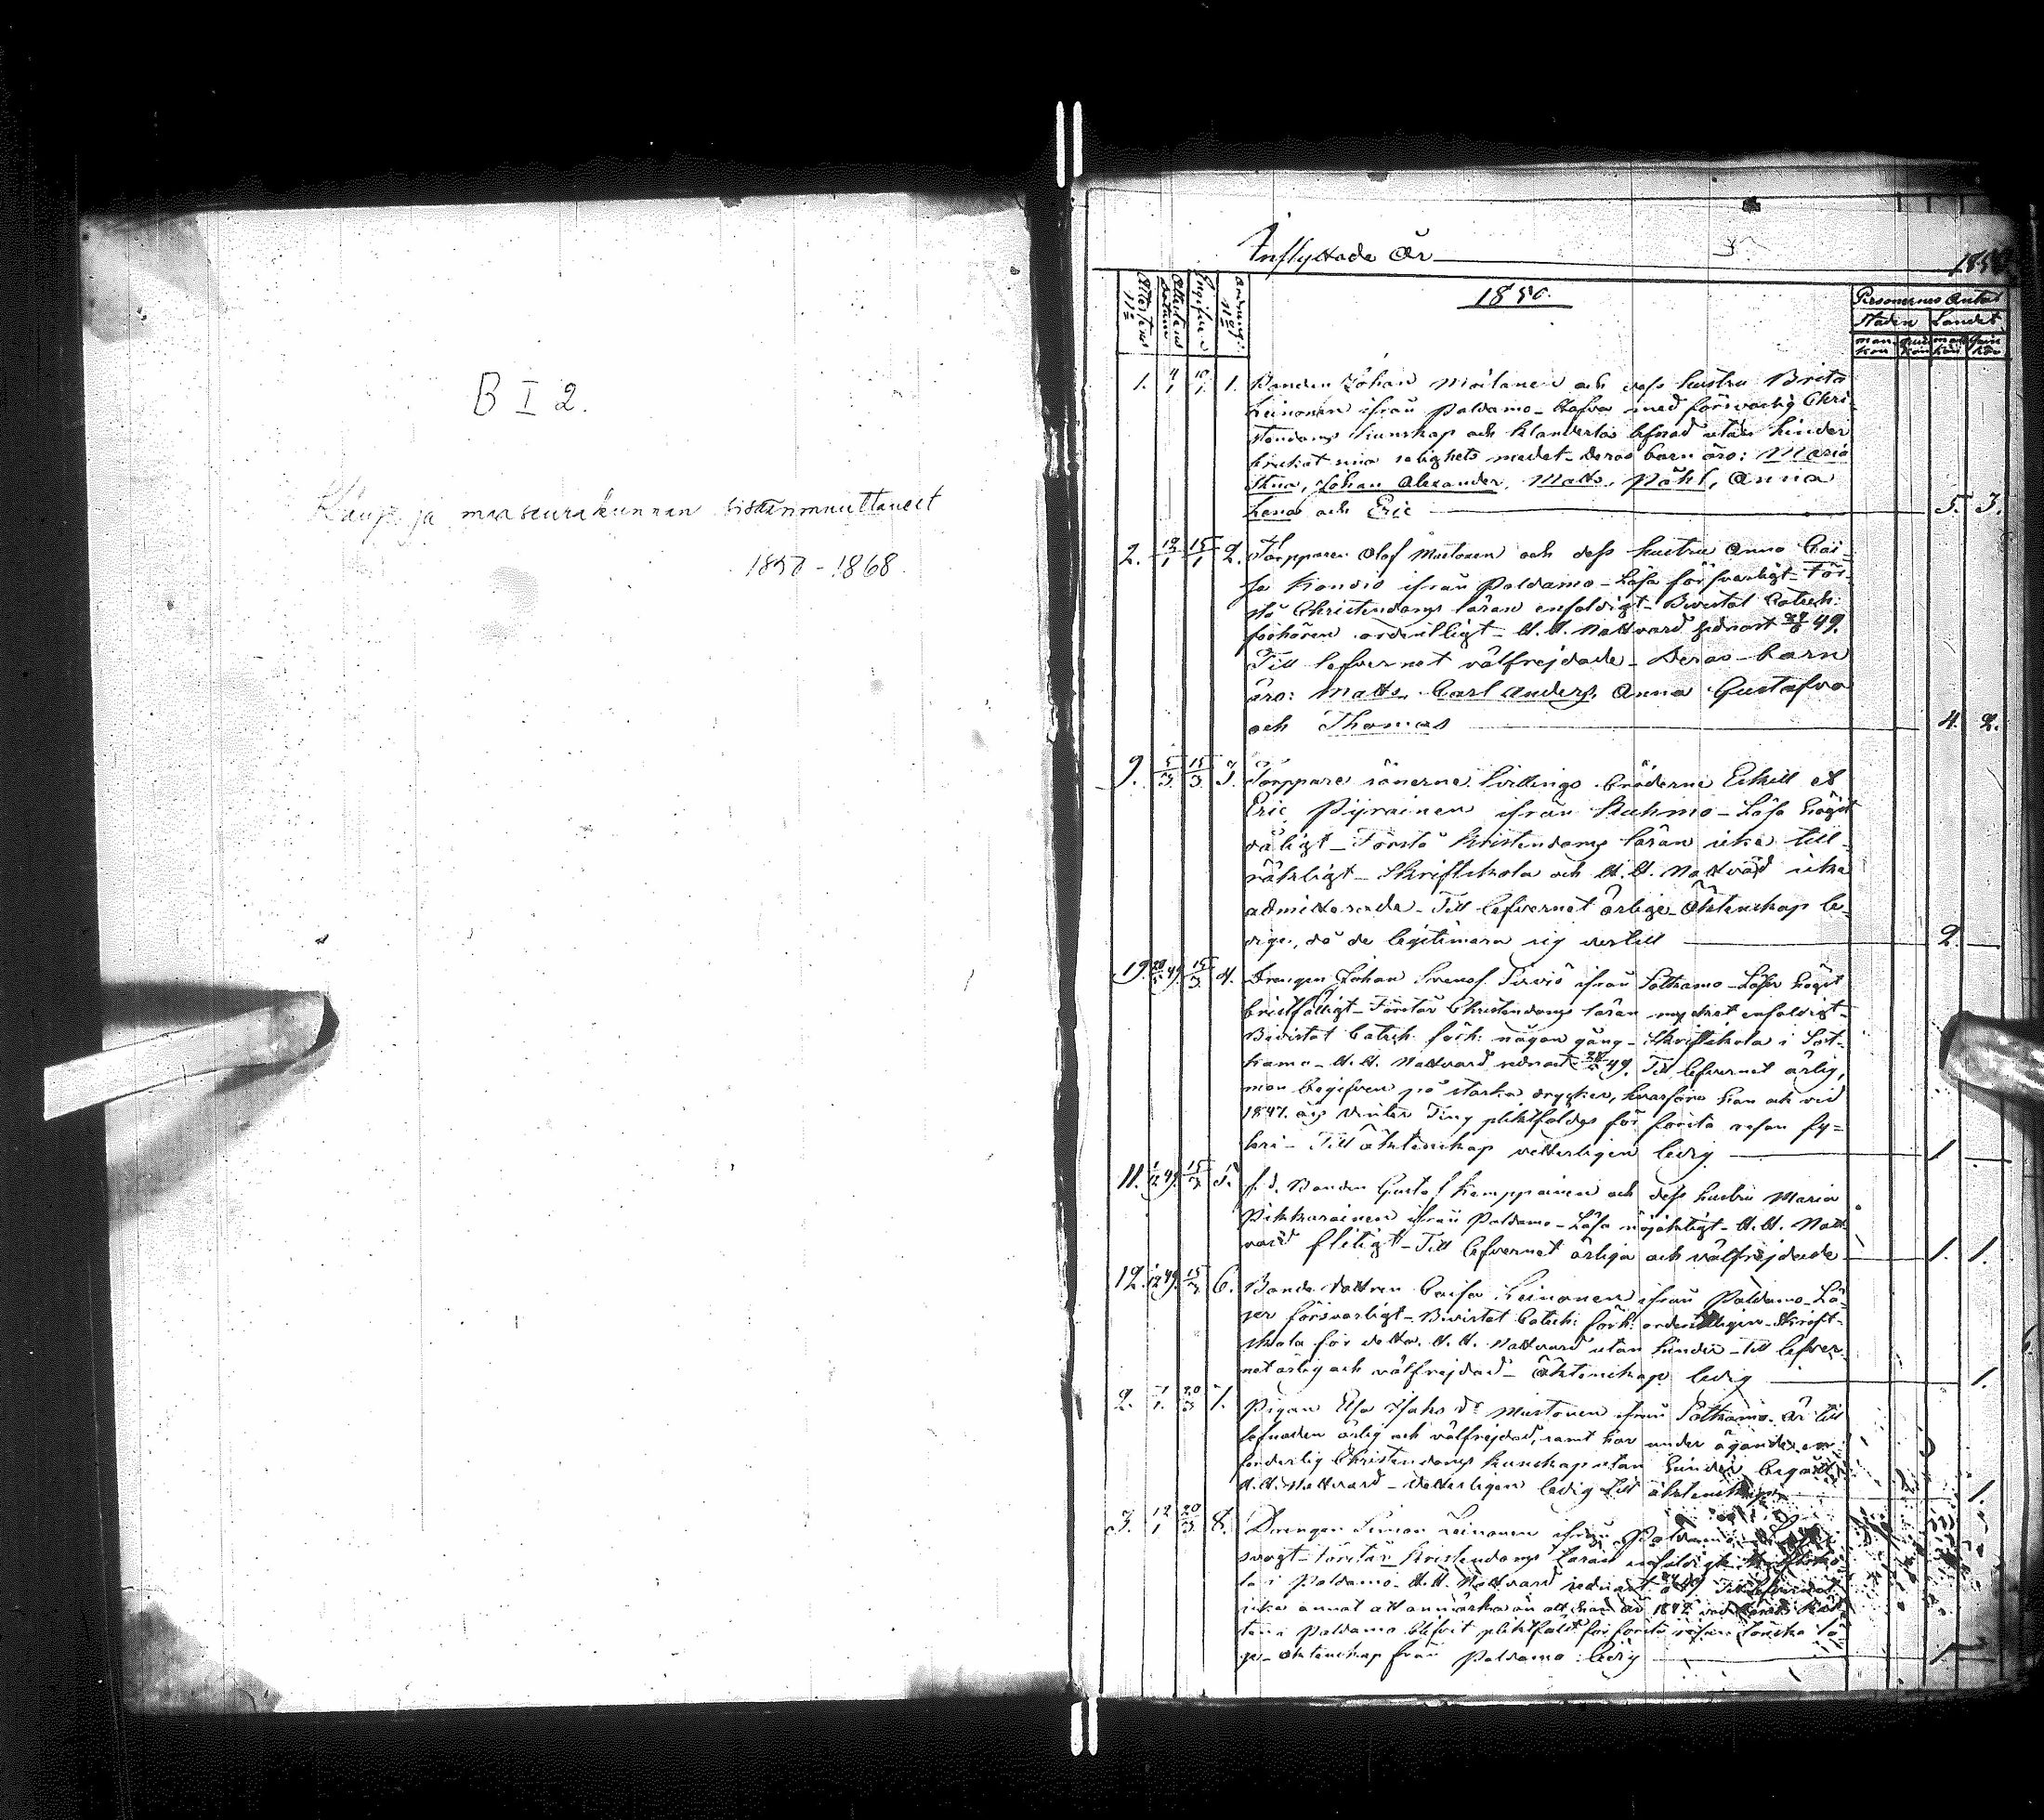 B I 2.
Kaup. ja maaseurakunnan sisäänmuuttaneet
1850-1868.
Inflyttade År
1850
1850.
Attestens No
Attestens datum
Ingifven
Ordnings No
Personernes Antal
Staden Landet
mankön qvinkön mankön qvinkön
1. 4/1 10/1 1. Bonden Johan Moilanen och dess hustru Brita
Leinonen ifrån Paldamo - Hafva med försvarlig Chri-
stendoms kunskap och klanderlös lefnad utan hinder
brukat sina salighets medel - Deras barn äro: Maria
Stina, Johan Alexander, Matts, Påhl, Anna
Lena och Eric 5. 3.
2. 12/1 15/1 2. Torpparen Olof Mustonen och dess hustru Anna Cai-
sa ifrån Paldamo - Läsa försvarligt - För-
stå Christendoms läran enfaldigt - Bevistat Catech:
förhören ordentligt - H. H. Nattvard sednast 49.
Till lefvernet välfrejdade - Deras barn
äro: Matts, Carl Anders, Anna Gustafva
och Thomas 4. 2.
9. 5/3 15/3 3. Torppare sönerne tvillings bröderne Eskill et
Eric Pyrainen ifrån Kuhmo - Läsa högst
dåligt - Förstå Kristendoms läran icke till-
räkligt - Skriftskola och H. H. Nattvard icke
admitterade - Till lefvernet ärlige - Äktenskap le-
dige, då de legitimera sig dertill 2.
19. 49. 15/3 4. Drengen Johan Svensson Tervo ifrån Sotkamo - Läser högst
bristfälligt - Förstår Christendoms läran mycket enfaldigt -
Bevistat Catech: förh: någon gång - Skriftskola i Sot-
kamo - H. H. Nattvard sednast 49. Till lefvernet ärlig,
men begifven på starka drycker, hvarföre han och vid
1847. års Vinter Ting pliktfäldes för första resan fy-
lleri - Till äktenskap vetterligen ledig 1.
11. 49. 15/3 5. f. d. Bonden Gustaf Kemppainen och dess hustru Maria
Pikkarainen ifrån Paldamo - Läsa nöjaktigt - H. H. Natt-
vard flitigt - Till lefvernet ärliga och välfrejdade 1. 1.
12. 49. 15/3 6. Bonde dottren Caisa Leinonen ifrån Paldamo - Lä-
ser försvarligt - Bevistat Catech: förh: ordentligen - Skrift-
skola för detta. H. H. Nattvard utan hinder - till lefver-
net ärlig och välfrejdad - Äktenskap ledig 1.
2. 20/3 7. Pigan Elsa Isaks dr Mustonen ifrån Sotkamo - Är till
lefnaden ärlig och välfrejdad, samt har under ägande er-
forderlig Christendoms kunskap utan hinder begått
H. H. Nattvard - Vetterligen ledig till äktenskap 1.
3. 12/1 20/3 8. Drengen Simon Leinonen ifrån Paldamo
svagt - Förstår Kristendoms läran enfaldigt - Skriftsko-
la i Paldamo - H. H. Nattvard sednast Till lefvernet
icke annat att anmärka än att han år
i Paldamo blifvit pliktfäld för första resan
Äktenskap från Paldamo ledig 1